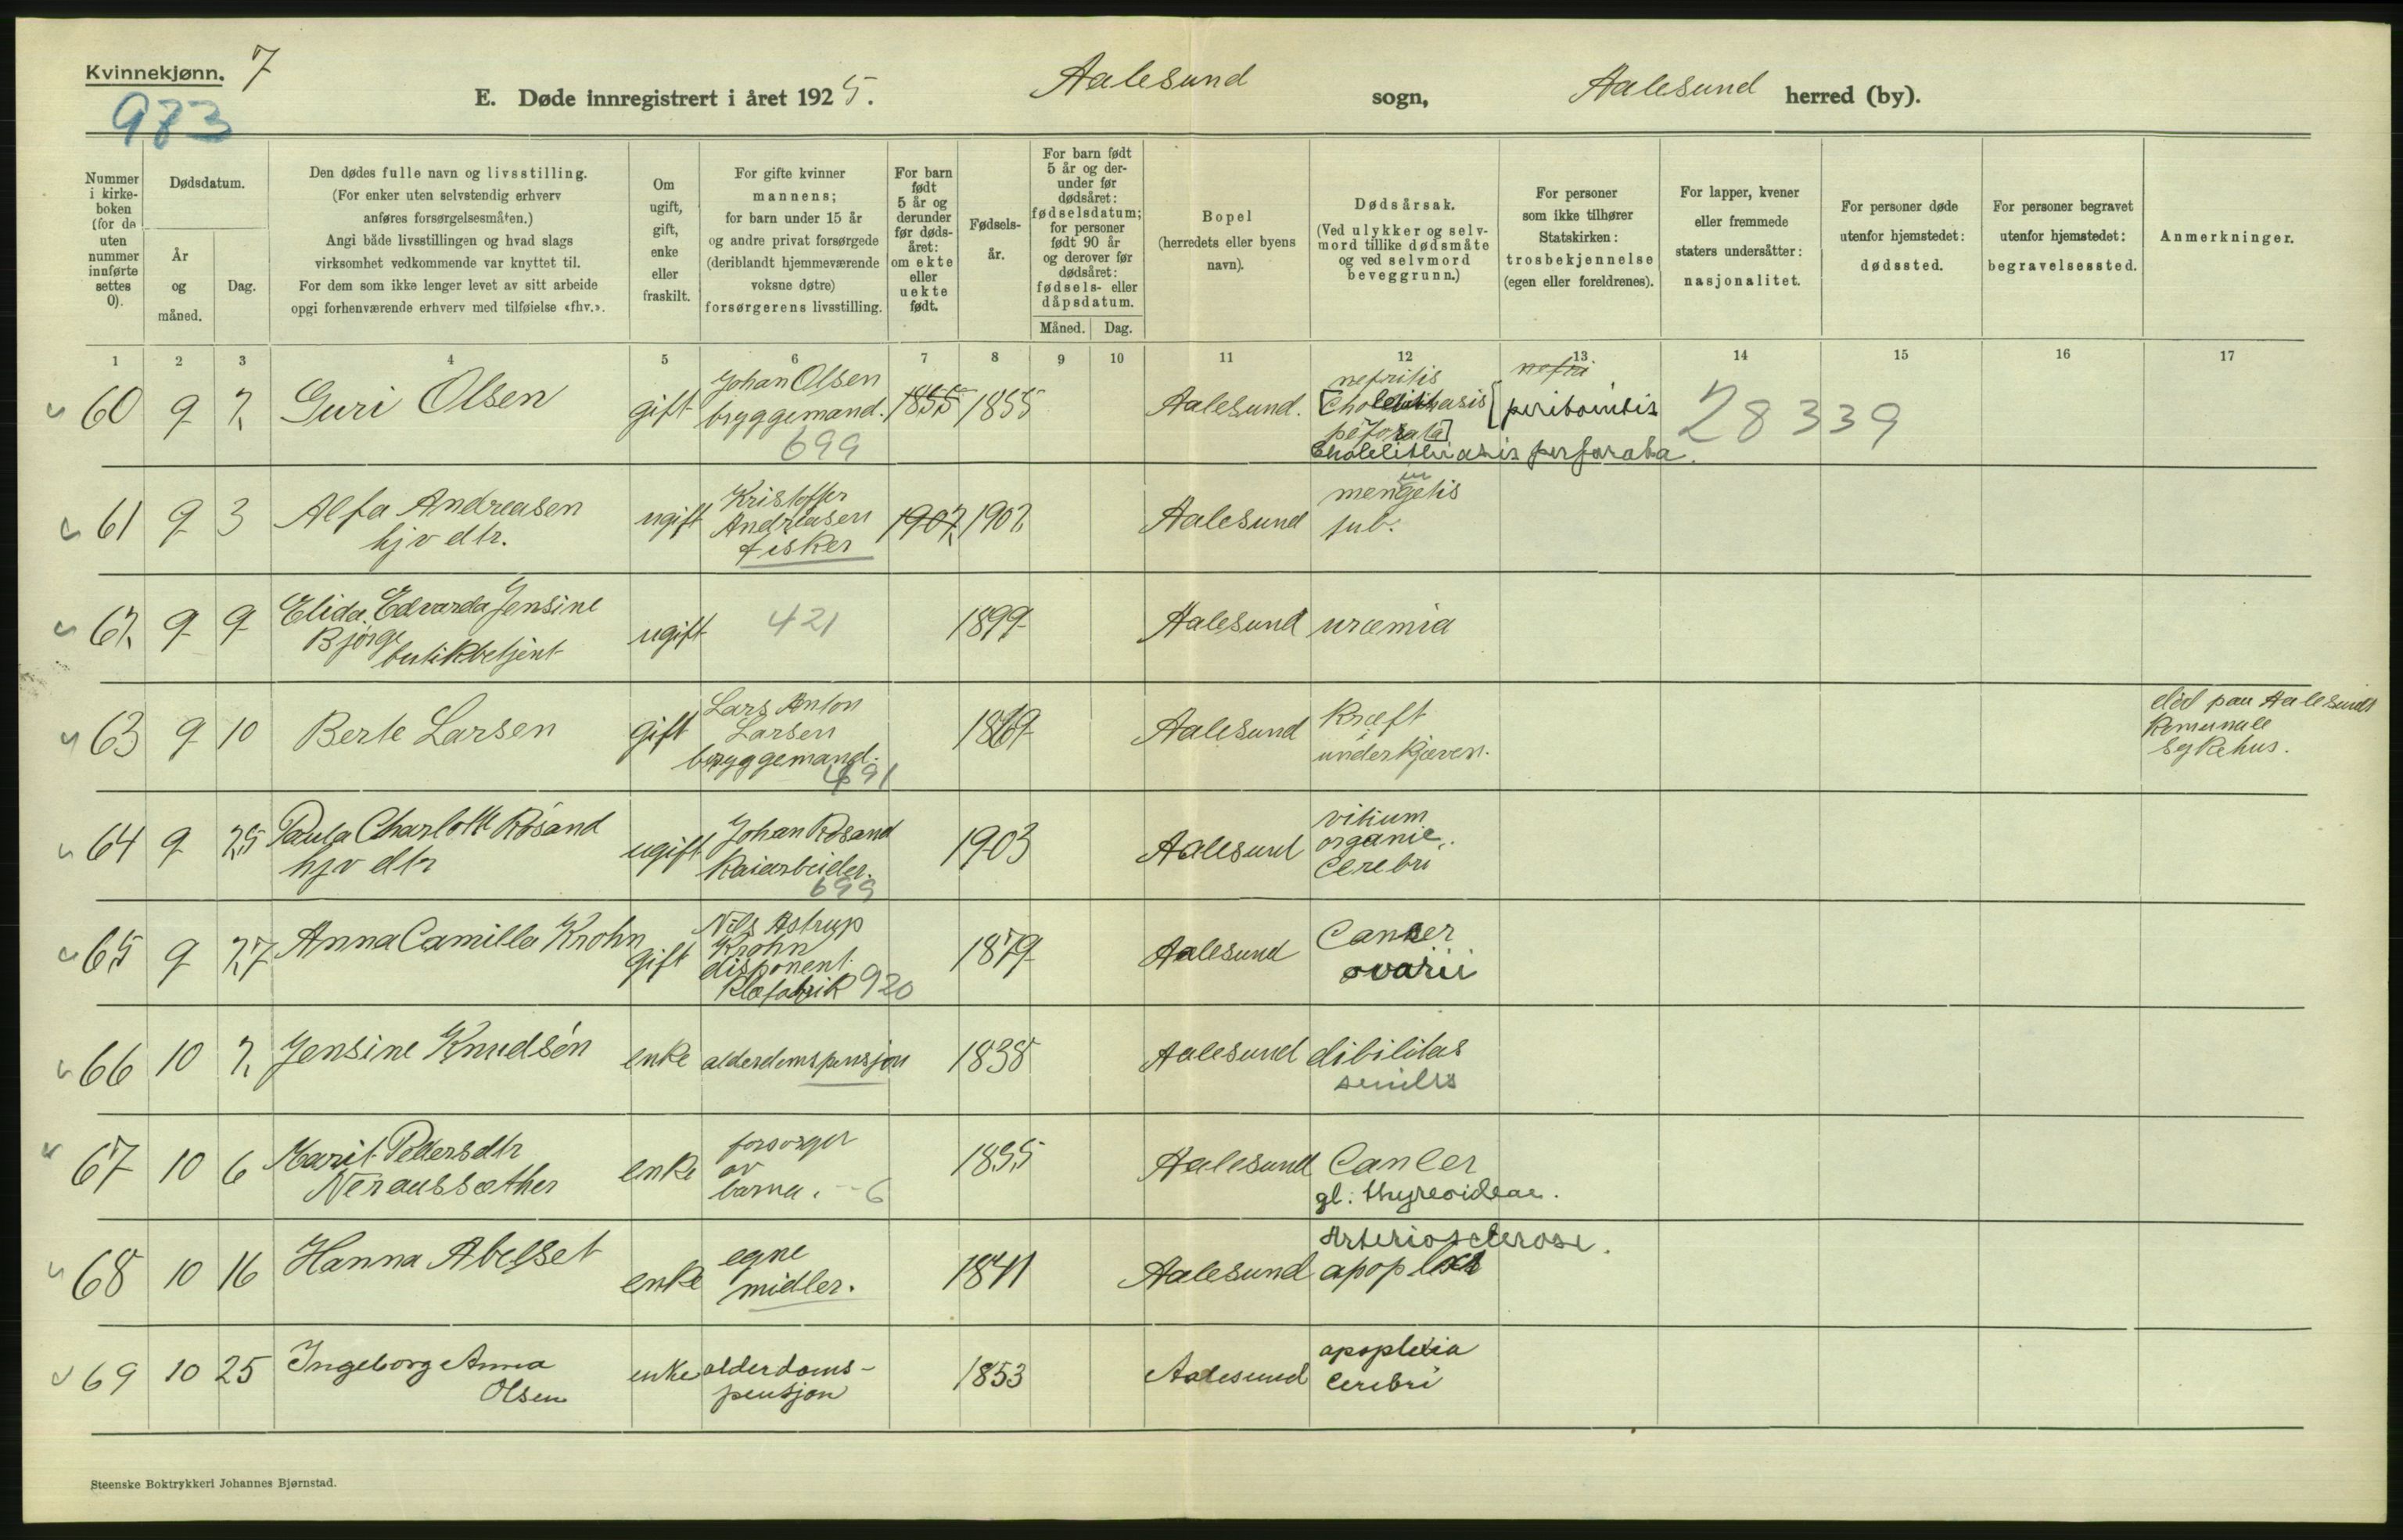 Kvinnekjønn. 7
983
E. Døde innregistrert i året 1925. Aalesund sogn, Aalesund herred (by).
Nummer i kirke-boken (for de uten nummer innførte settes 0).
Dødsdatum.
År og måned.
Dag.
Den dødes fulle navn og livsstilling.
(For enker uten selvstendig erhverv
anføres forsørgelsesmåten.)
Angi både livsstillingen og hvad slags
virksomhet vedkommende var knyttet til.
For dem som ikke lenger levet av sitt arbeide
opgi forhenværende erhverv med tilføielse «fhv.».
Om ugift, gift, enke eller fraskilt.
For gifte kvinner
mannens;
for barn under 15 år
og andre privat forsørgede
(deriblandt hjemmeværende
voksne døtre)
forsørgerens livsstilling.
For barn født 5 år og derunder før døds-året: om ekte eller uekte født.
Fødsels-år.
For barn født 5 år og der-under før dødsåret: fødselsdatum; for personer født 90 år og derover før dødsåret: fødsels- eller dåpsdatum.
Måned. Dag.
Bopel
(herredets eller byens
navn).
Dødsårsak.
(Ved ulykker og selv-
mord tillike dødsmåte
og ved selvmord
beveggrunn.)
For personer
som ikke tilhører
Statskirken:
trosbekjennelse
(egen eller foreldrenes).
For lapper, kvener
eller fremmede
staters undersåtter:
nasjonalitet.
For personer døde
utenfor hjemstedet:
dødssted.
For personer begravet
utenfor hjemstedet:
begravelsessted.
Anmerkninger.
1 2 3 4 5 6 7 8 9 10 11 12 13 14 15 16 17
60 9 2 Guri Olsen gift Johan Olsen
bryggemand. 1855 1855 Aalesund.
699
nefritis
[Cholelithiasis [peritonitis 28339
Cholelithiasis perforata.
61 9 3 Alfa Andreasen
hjv dtr. ugift Kristoffer
Andreasen
fisker 1902 1902 Aalesund mengetis
in
tub.
62 9 9 Elida Edvarda Jensine
Bjørge
butikbetjent ugift 421 1899 Aalesund uræmia
63 9 10 Berte Larsen gift Lars Anton
Larsen
bryggemand.
691 1869 Aalesund Kræft
underkjæven.
død paa Aalesunds
Komunale
sykehus.
64 9 25 Paula Charlotte Røsand
hjv dtr ugift Johan Røsand
Kaiarbeider.
699 1903 Aalesund vitium
organic.
cerebri
65 9 27 Anna Camilla Krohn gift Nils Astrup
Krohn
disponent
Klæfabrik 920 1879 Aalesund Cancer
ovarii
66 10 2 Jensine Knudsen enke alderdomspensjon 1838 Aalesund dibilitas
senilis
67 10 6 Marit Pettersdtr
Neraussæther enke forsørget
av
barna. - 6 1855 Aalesund Cancer
gl: thyreoideae.
68 10 16 Hanna Abelset enke egne
midler. 1841 Aalesund Arteriosclerose.
69 10 25 Ingeborg Anna
Olsen enke alderdoms-
pensjon 1853 Aalesund apoplexia
cerebri
Steenske Boktrykkeri Johannes Bjørnstad.